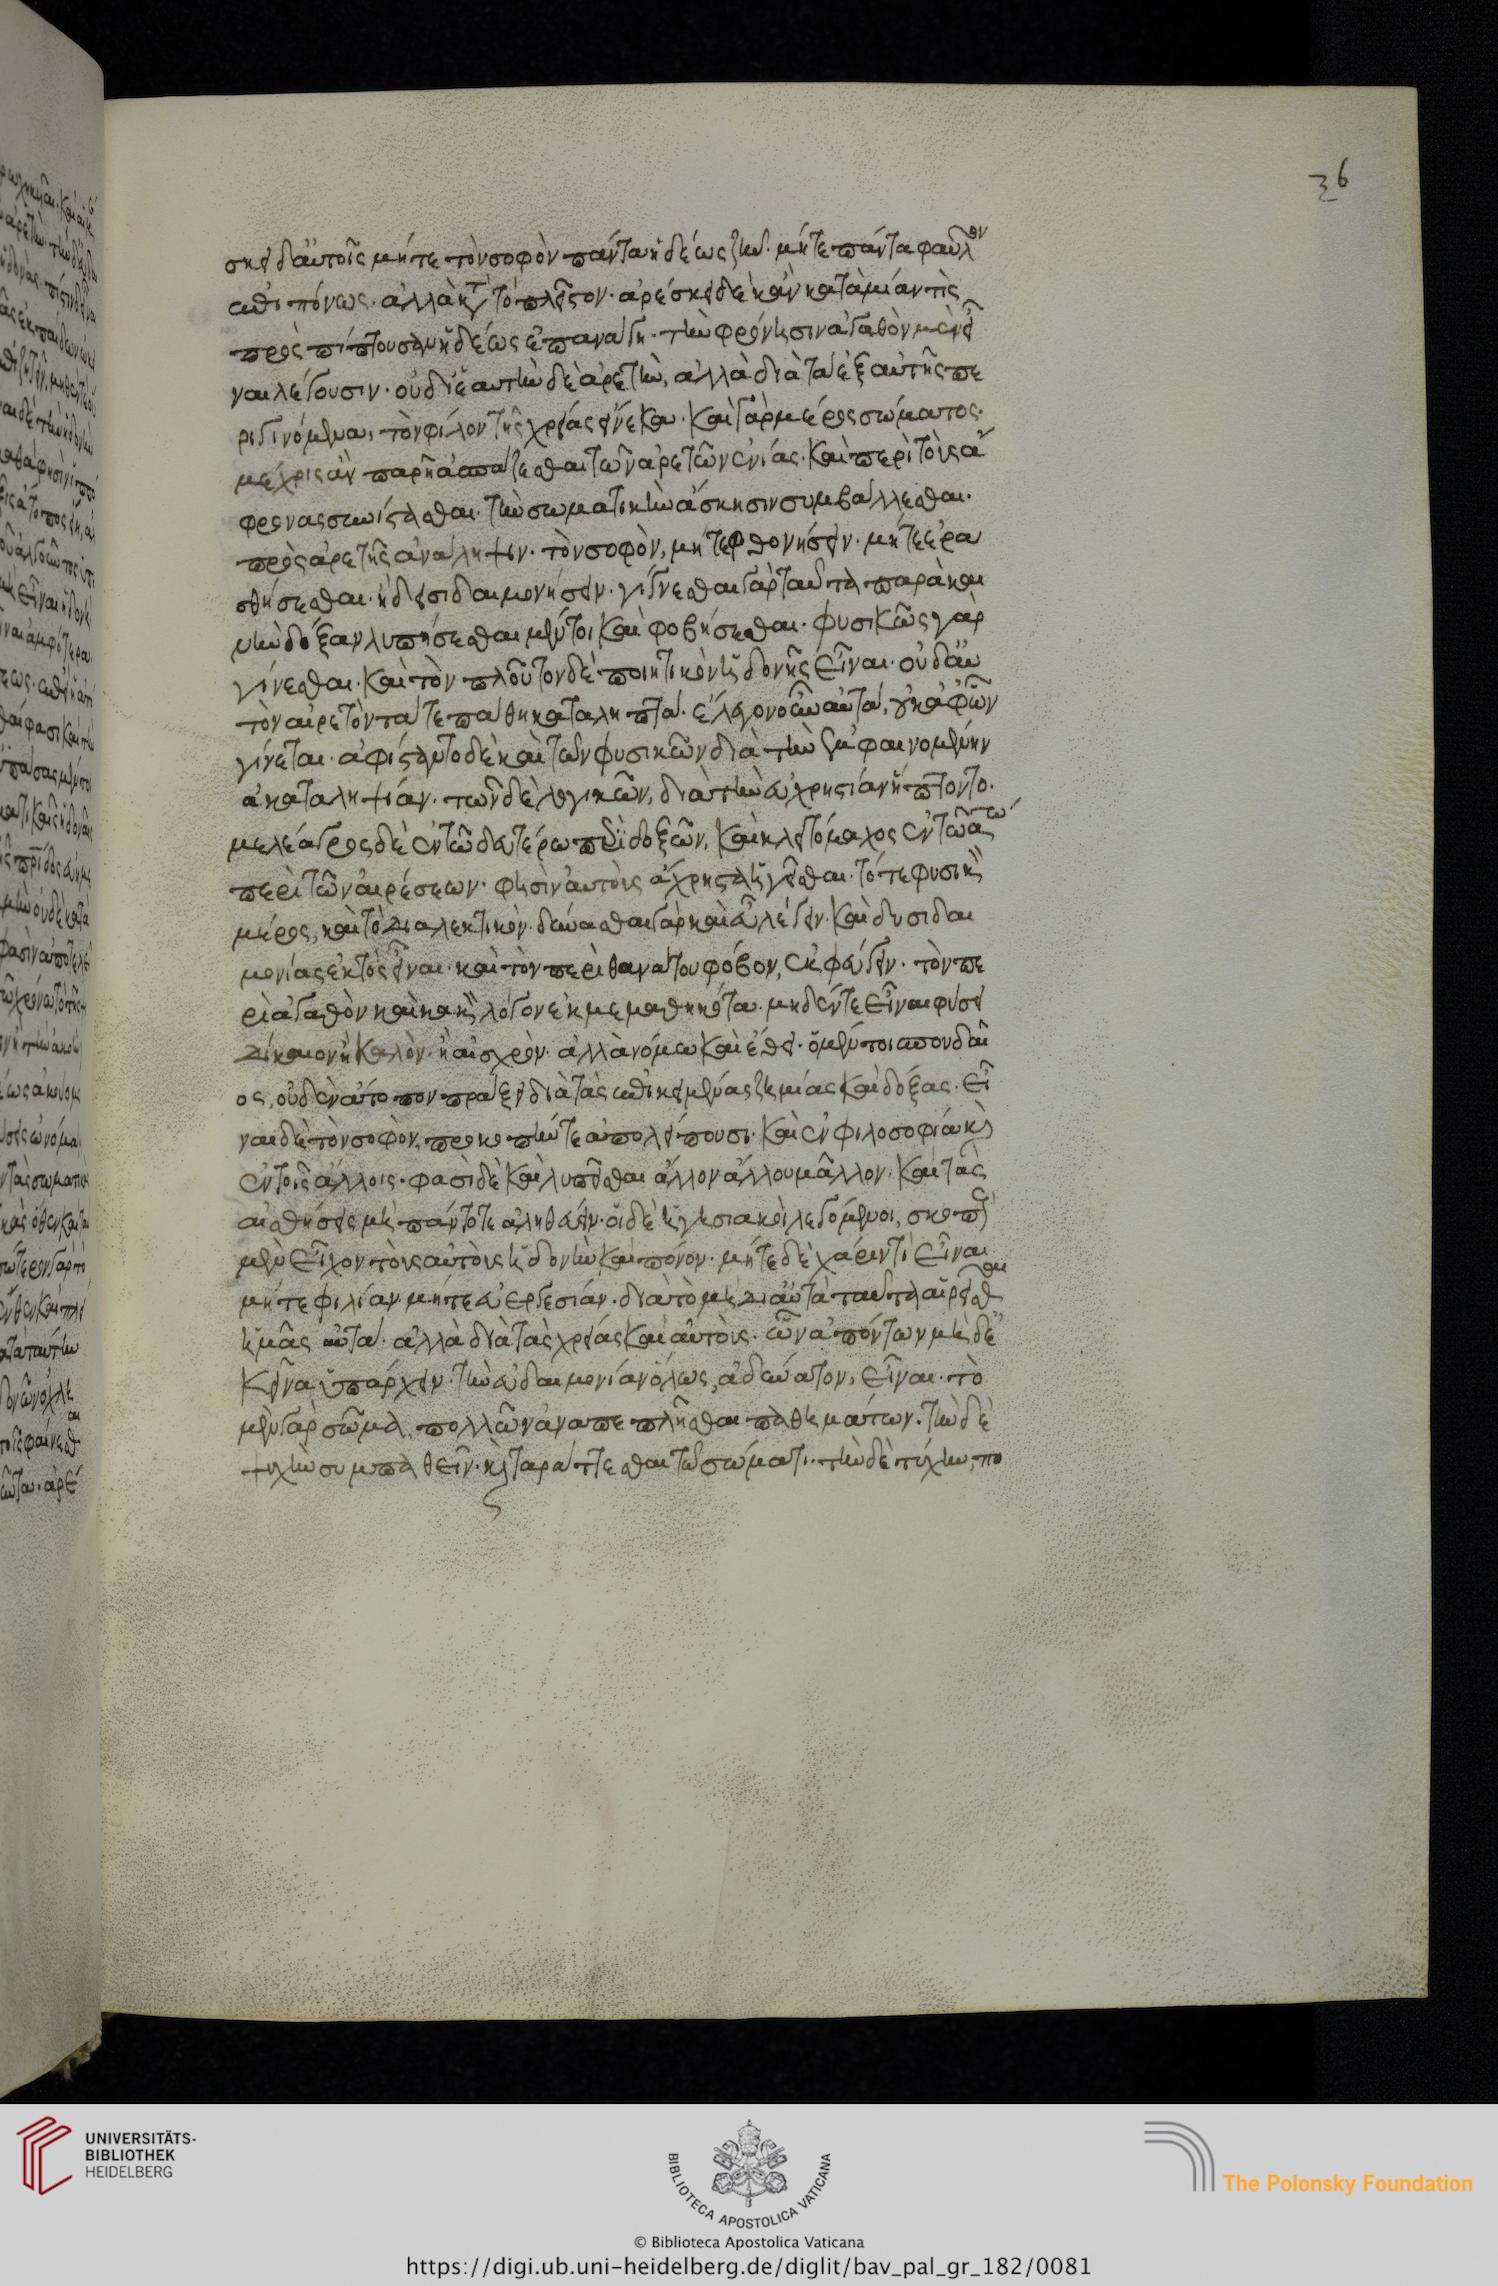 36
σκει δ' αὐτοῖς μήτε τὸν σοφὸν πάντα ἡδέως ζῆν. μήτε πάντα φαῦλον
ἐπιπόνως. ἀλλὰ κτ' τὸ πλεῖστον. ἀρέσκει δὲ κἂν κατὰ μίαν τὶς
προς πίπτουσαν ἡδέως ἐπανάγη. τὴν φρόνησιν ἀγαθὸν μὲν εἶ
ναι λέγουσιν. οὐ δι' ἑαυτὴν δὲ αἱρετὴν, ἀλλὰ διὰ τὰ ἐξ αὐτῆς πε
ριγινόμενα, τὸν φίλον τῆς χρείας εἵνεκα. καὶ γὰρ μέρος σώματος.
μέχρις ἂν παρῆ ἀσπάζεσθαι τῶν ἀρετῶν ἐνίας. καὶ περὶ τοὺς ἄ
φρονας συνίστασθαι. τὴν σωματικὴν ἄσκησιν συμβάλλεσθαι.
πρὸς ἀρετῆς ἀνάληψιν. τὸν σοφὸν, μήτε φθονήσειν. μήτε ἐρα
σθήσεσθαι. ἢ δεισιδαιμονήσειν. γίγνεσθαι γὰρ ταῦτα παρὰ και
νὴν δόξαν λυπήσεσθαι μέντοι καὶ φοβήσεσθαι. φυσικῶς γὰρ
γίνεσθαι. καὶ τὸν πλοῦτον δὲ ποιητικὸν ἡδονῆς εἶναι. οὐ δι' αὑ
τὸν αἱρετὸν τά τε πάθη καταληπτά. ἔλεγον οὖν αὐτά, οὐκ ἀφ' ὧν
γίνεται. ἀφίσταντο δὲ καὶ τῶν φυσικῶν διὰ τὴν ἐμφαινομένην
ἀκαταληψίαν. τῶν δὲ λογικῶν, διὰ τὴν εὐχρηστίαν ἥπτοντο.
μελέαγρος δὲ ἐν τῶ δευτέρω περὶ δοξῶν, καὶ κλειτόμαχος ἐν τῶ α τῶ
περὶ τῶν αἱρέσεων. φησὶν αὐτοὺς ἄχρηστα ἡγεῖσθαι. τό τε φυσικὸν
μέρος, καὶ τὸ διαλεκτικὸν. δύνασθαι γὰρ καὶ εὖ λέγειν. καὶ δυσιδαι
μονίας ἐκτὸς εἶναι. καὶ τὸν περὶ θανάτου φόβον, ἐκφεύγειν. τὸν πε
ρὶ ἀγαθὸν καὶ κακὸν λόγον ἐκμεμαθηκότα. μηδέν τε εἶναι φύσει
δίκαιον ἢ καλὸν. ἢ αἰσχρὸν. ἀλλὰ νόμω καὶ ἔθει. ὁ μέντοι σπουδαῖ
ος, οὐδὲν ἄτοπον πράξει διὰ τὰς ἐπικειμένας ζημίας καὶ δόξας. εἶ
ναι δὲ τὸν σοφὸν, προκοπήν τε ἀπολείπουσι. καὶ ἐν φιλοσοφία κὶ
ἐν τοῖς ἄλλοις. φασὶ δὲ καὶ λυπεῖσθαι ἄλλον ἄλλου μᾶλλον. καὶ τὰς
αἰσθήσεις μὴ πάντοτε ἀληθεύειν. οἱ δὲ ἡγησιακοὶ λεγόμενοι, σκοποὺς
μὲν εἶχον τοὺς αὐτοὺς ἡδονὴν καὶ πόνον. μήτε δὲ χάριν τὶ εἶναι
μήτε φιλίαν. μήτε εὐεργεσίαν. διὰ τὸ μὴ δι' αὐτὰ ταῦτα αἱρεῖσθαι
ἡμᾶς αὐτά. ἀλλὰ διὰ τὰς χρείας καὶ αὐτοὺς. ὧν ἀπόντων μὴ δ' ἐ
κεῖνα ὑπάρχειν. τὴν εὐδαιμονίαν ὅλως, ἀδύνατον, εἶναι. τὸ
μὲν γὰρ σῶμα, πολλῶν ἀναπεπλῆσθαι παθημάτων. τὴν δὲ
ψυχὴν συμπαθεῖν. κὶ ταράττεσθαι τῶ σώματι. τὴν δὲ τύχην, πο
UNIVERSITÄTS-
BIBLIOTHEK
HEIDELBERG
BIBLIOTECA APOSTOLICA VATICANA
The Polonsky Foundation
© Biblioteca Apostolica Vaticana
https://digi.ub.uni-heidelberg.de/diglit/bav_pal_gr_182/0081